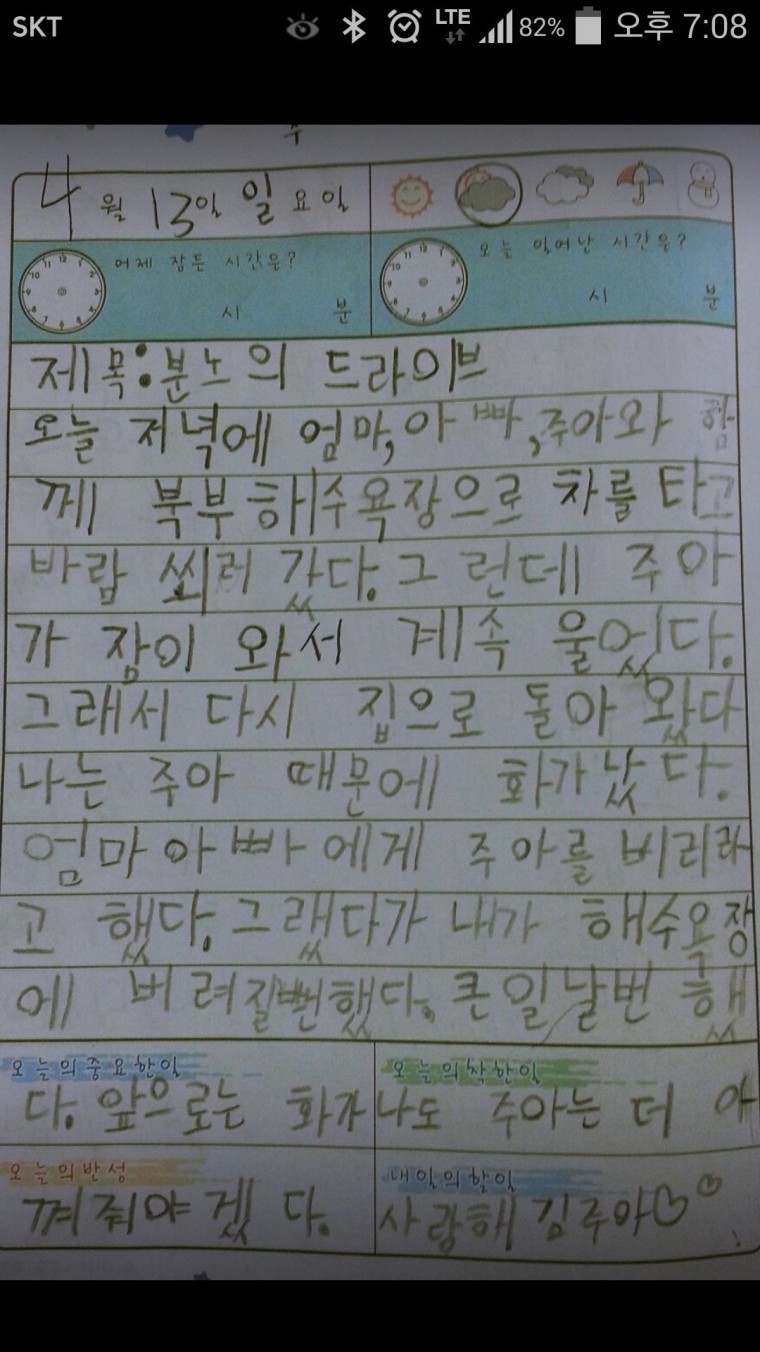 SKT LTE 82% 오후 7:08
4월 13일 일요일
어제 잠든 시간은?
시 분
오늘 일어난 시간은?
시 분
제목:분노의 드라이브
오늘 저녁에 엄마,아빠,주아와 함
께 북부해수욕장으로 차를 타고
바람 쐬러 갔다. 그런데 주아
가 잠이 와서 계속 울었다.
그래서 다시 집으로 돌아 왔다
나는 주아 때문에 화가났다.
엄마아빠에게 주아를 비리라
고 했다. 그랬다가 내가 해수욕장
에 버려질뻔했다. 큰일날번 했
오늘의중요한일 오늘의착한일
다. 앞으로는 화가나도 주아는 더 아
오늘의반성 내일의할일
껴줘야겠다. 사랑해 김주아♡♡